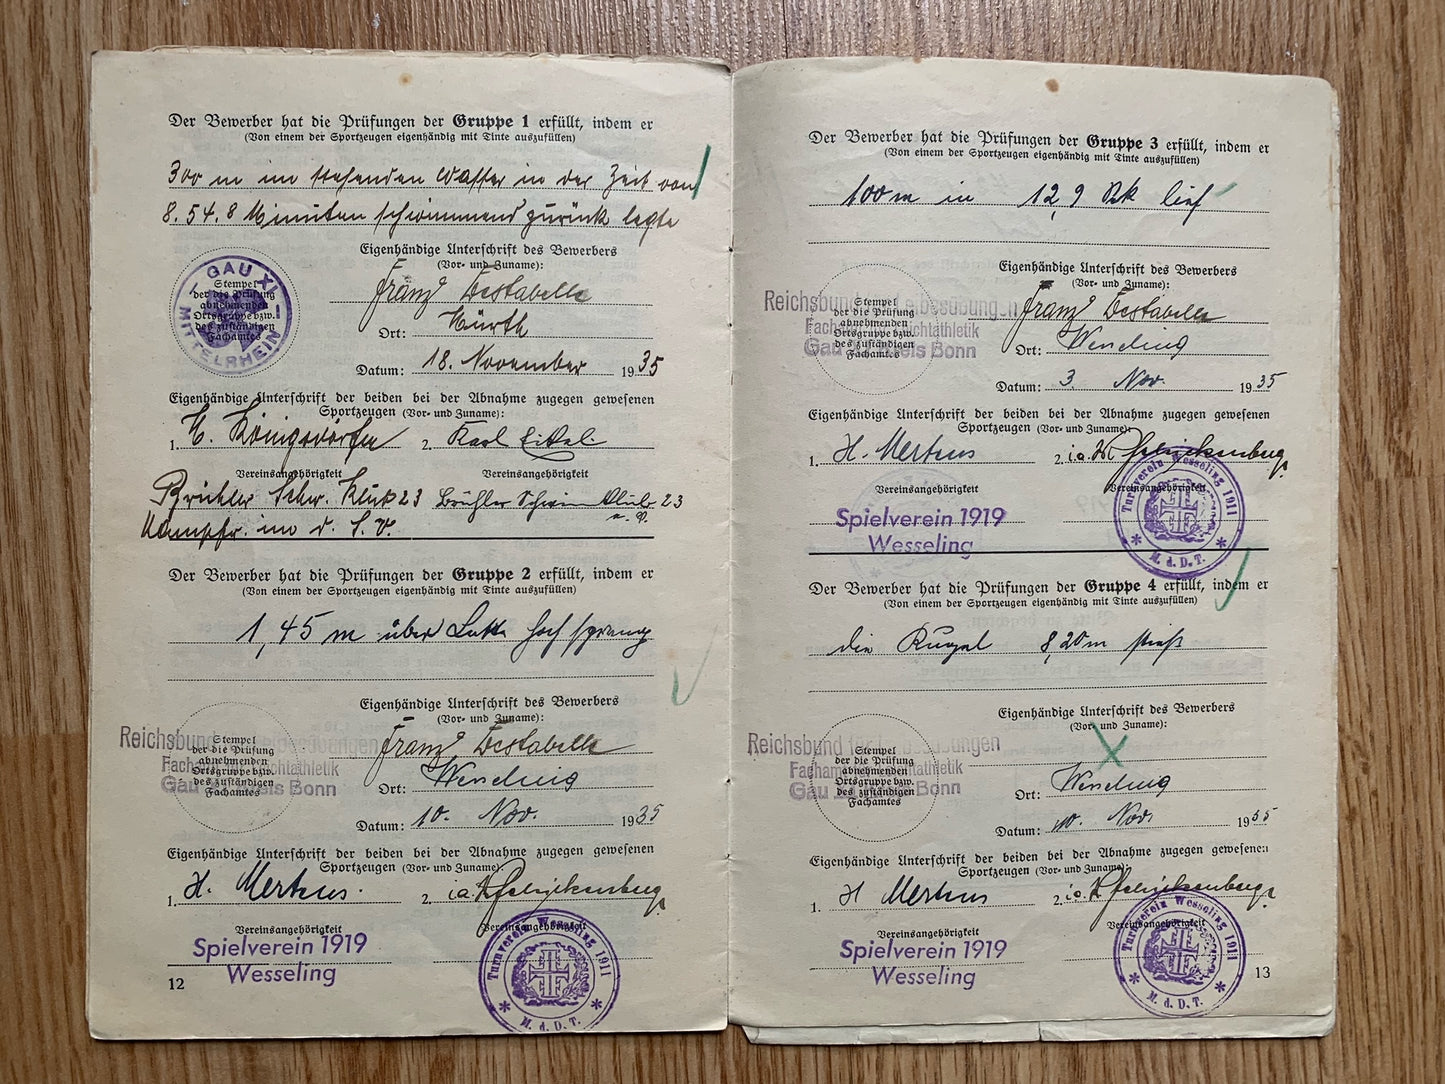 Der Bewerber hat die Prüfungen der Gruppe 1 erfüllt, indem er
(Von einem der Sportzeugen eigenhändig mit Tinte auszufüllen)
300 m im stehenden Wasser in der Zeit von
8.54.8 Minuten schwimmend zurück legte
Eigenhändige Unterschrift des Bewerbers
(Vor- und Zuname):
Franz
Ort: Hürth
Datum: 18. November 1935
GAU XI
MITTELRHEIN
Stempel
der die Prüfung
abnehmenden
Ortsgruppe bzw.
des zuständigen
Fachamtes
Eigenhändige Unterschrift der beiden bei der Abnahme zugegen gewesenen
Sportzeugen (Vor- und Zuname):
1. 2. Karl
Vereinsangehörigkeit Vereinsangehörigkeit
Schw. Klub 23 Brühler Schwimm Club 23
Der Bewerber hat die Prüfungen der Gruppe 2 erfüllt, indem er
(Von einem der Sportzeugen eigenhändig mit Tinte auszufüllen)
1,45 m über Latte hoch sprang
Eigenhändige Unterschrift des Bewerbers
(Vor- und Zuname):
Franz
Ort:
Datum: 10. Nov. 1935
Reichsbund für Leibesübungen
Fachamt Leichtathletik
Gau Kreis Bonn
Stempel
der die Prüfung
abnehmenden
Ortsgruppe bzw.
des zuständigen
Fachamtes
Eigenhändige Unterschrift der beiden bei der Abnahme zugegen gewesenen
Sportzeugen (Vor- und Zuname):
1. H. Mertens. 2. i.a.
Vereinsangehörigkeit Vereinsangehörigkeit
Spielverein 1919
Wesseling
Turnverein Wesseling 1911
M. d. D. T.
12
Der Bewerber hat die Prüfungen der Gruppe 3 erfüllt, indem er
(Von einem der Sportzeugen eigenhändig mit Tinte auszufüllen)
100 m in 12,9 Sek lief
Eigenhändige Unterschrift des Bewerbers
(Vor- und Zuname):
Franz
Ort:
Datum: 3 Nov. 1935
Reichsbund für Leibesübungen
Fachamt Leichtathletik
Gau Kreis Bonn
Stempel
der die Prüfung
abnehmenden
Ortsgruppe bzw.
des zuständigen
Fachamtes
Eigenhändige Unterschrift der beiden bei der Abnahme zugegen gewesenen
Sportzeugen (Vor- und Zuname):
1. H. Mertens 2. i.a.
Vereinsangehörigkeit Vereinsangehörigkeit
Spielverein 1919
Wesseling
Turnverein Wesseling 1911
M. d. D. T.
Der Bewerber hat die Prüfungen der Gruppe 4 erfüllt, indem er
(Von einem der Sportzeugen eigenhändig mit Tinte auszufüllen)
die Kugel 8,20 m stieß
Eigenhändige Unterschrift des Bewerbers
(Vor- und Zuname):
Ort:
Datum: 10. Nov. 1935
Reichsbund für Leibesübungen
Fachamt Leichtathletik
Gau Kreis Bonn
Stempel
der die Prüfung
abnehmenden
Ortsgruppe bzw.
des zuständigen
Fachamtes
Eigenhändige Unterschrift der beiden bei der Abnahme zugegen gewesenen
Sportzeugen (Vor- und Zuname):
1. H Mertens 2. i.a.
Vereinsangehörigkeit Vereinsangehörigkeit
Spielverein 1919
Wesseling
Turnverein Wesseling 1911
M. d. D. T.
13